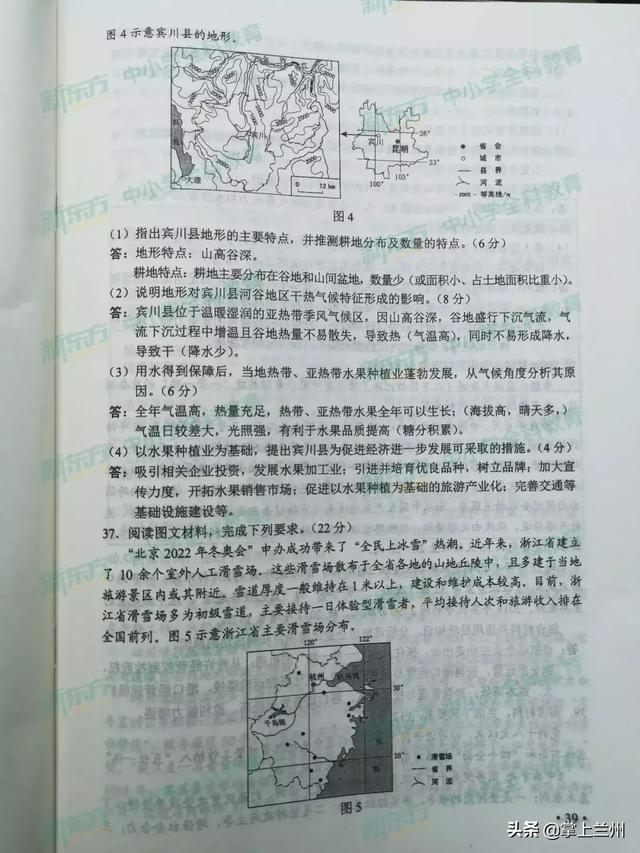 图4示意宾川县的地形.
宾川
大理
0 12 km
宾川
昆明
26°
23°
100°
103°
省会
城市
县界
河流
-2000- 等高线/m
图4
(1) 指出宾川县地形的主要特点，并推测耕地分布及数量的特点。(6分)
答: 地形特点：山高谷深。
耕地特点：耕地主要分布在谷地和山间盆地，数量少（或面积小、占土地面积比重小）。
(2) 说明地形对宾川县河谷地区干热气候特征形成的影响。(8分)
答: 宾川县位于温暖湿润的亚热带季风气候区，因山高谷深，谷地盛行下沉气流，气
流下沉过程中增温且谷地热量不易散失，导致热（气温高），同时不易形成降水，
导致干（降水少）。
(3) 用水得到保障后，当地热带、亚热带水果种植业蓬勃发展，从气候角度分析其原
因。(6分)
答: 全年气温高，热量充足，热带、亚热带水果全年可以生长；（海拔高，晴天多，）
气温日较差大，光照强，有利于水果品质提高（糖分积累）。
(4) 以水果种植业为基础，提出宾川县为促进经济进一步发展可采取的措施。(4分)
答: 吸引相关企业投资，发展水果加工业；引进并培育优良品种，树立品牌；加大宣
传力度，开拓水果销售市场；促进以水果种植为基础的旅游产业化；完善交通等
基础设施建设等。
37. 阅读图文材料，完成下列要求。(22分)
“北京2022年冬奥会”申办成功带来了“全民上冰雪”热潮。近年来，浙江省建立
了10余个室外人工滑雪场。这些滑雪场散布于全省各地的山地丘陵中，且多建于当地
旅游景区内或其附近。雪道厚度一般维持在1米以上，建设和维护成本较高。目前，浙
江省滑雪场多为初级雪道，主要接待一日体验型滑雪者，平均接待人次和旅游收入排在
全国前列。图5示意浙江省主要滑雪场分布。
120°
122°
杭州
杭州湾
30°
千岛湖
东
28°
海
滑雪场
省界
河流
图5
·39·
新东方 中小学全科教育
头条 @掌上兰州